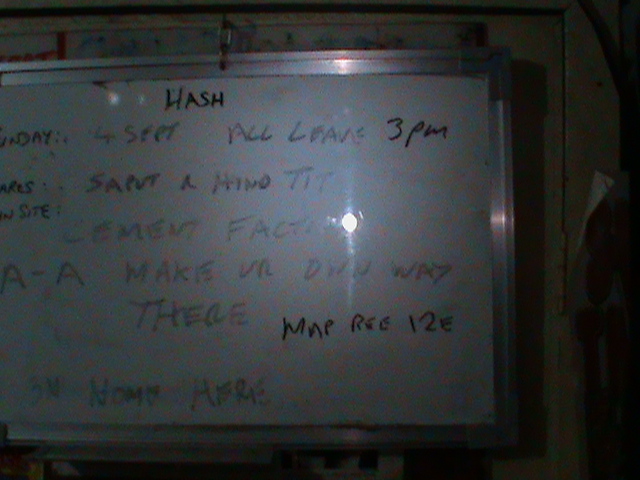 HASH
UNDAY:. 4 SEPT ALL LEAVE 3pm
ARES: SAPUT & HIND TIT
ON SITE:
CEMENT FACT
A-A MAKE UR OWN WAY
THERE MAP REF 12E
HERE